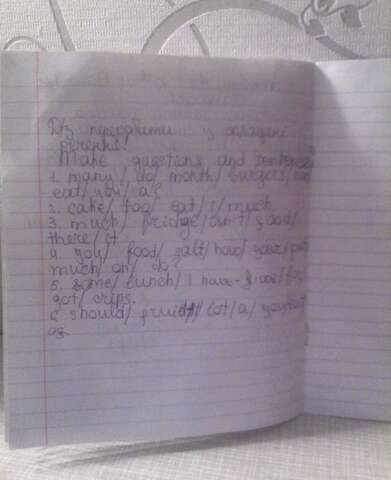 Д/з
речення.
Make questions and sentences
1. many / do / month / burgers /
eat / you / a?
2. cake / too / eat / I / much
3. much / fridge / isn't / food /
there / it
4. you / food / salt / how / your /
much / on / do?
5. some / lunch / I have /
got / crips.
6. should / fruit / lot / a / you / eat